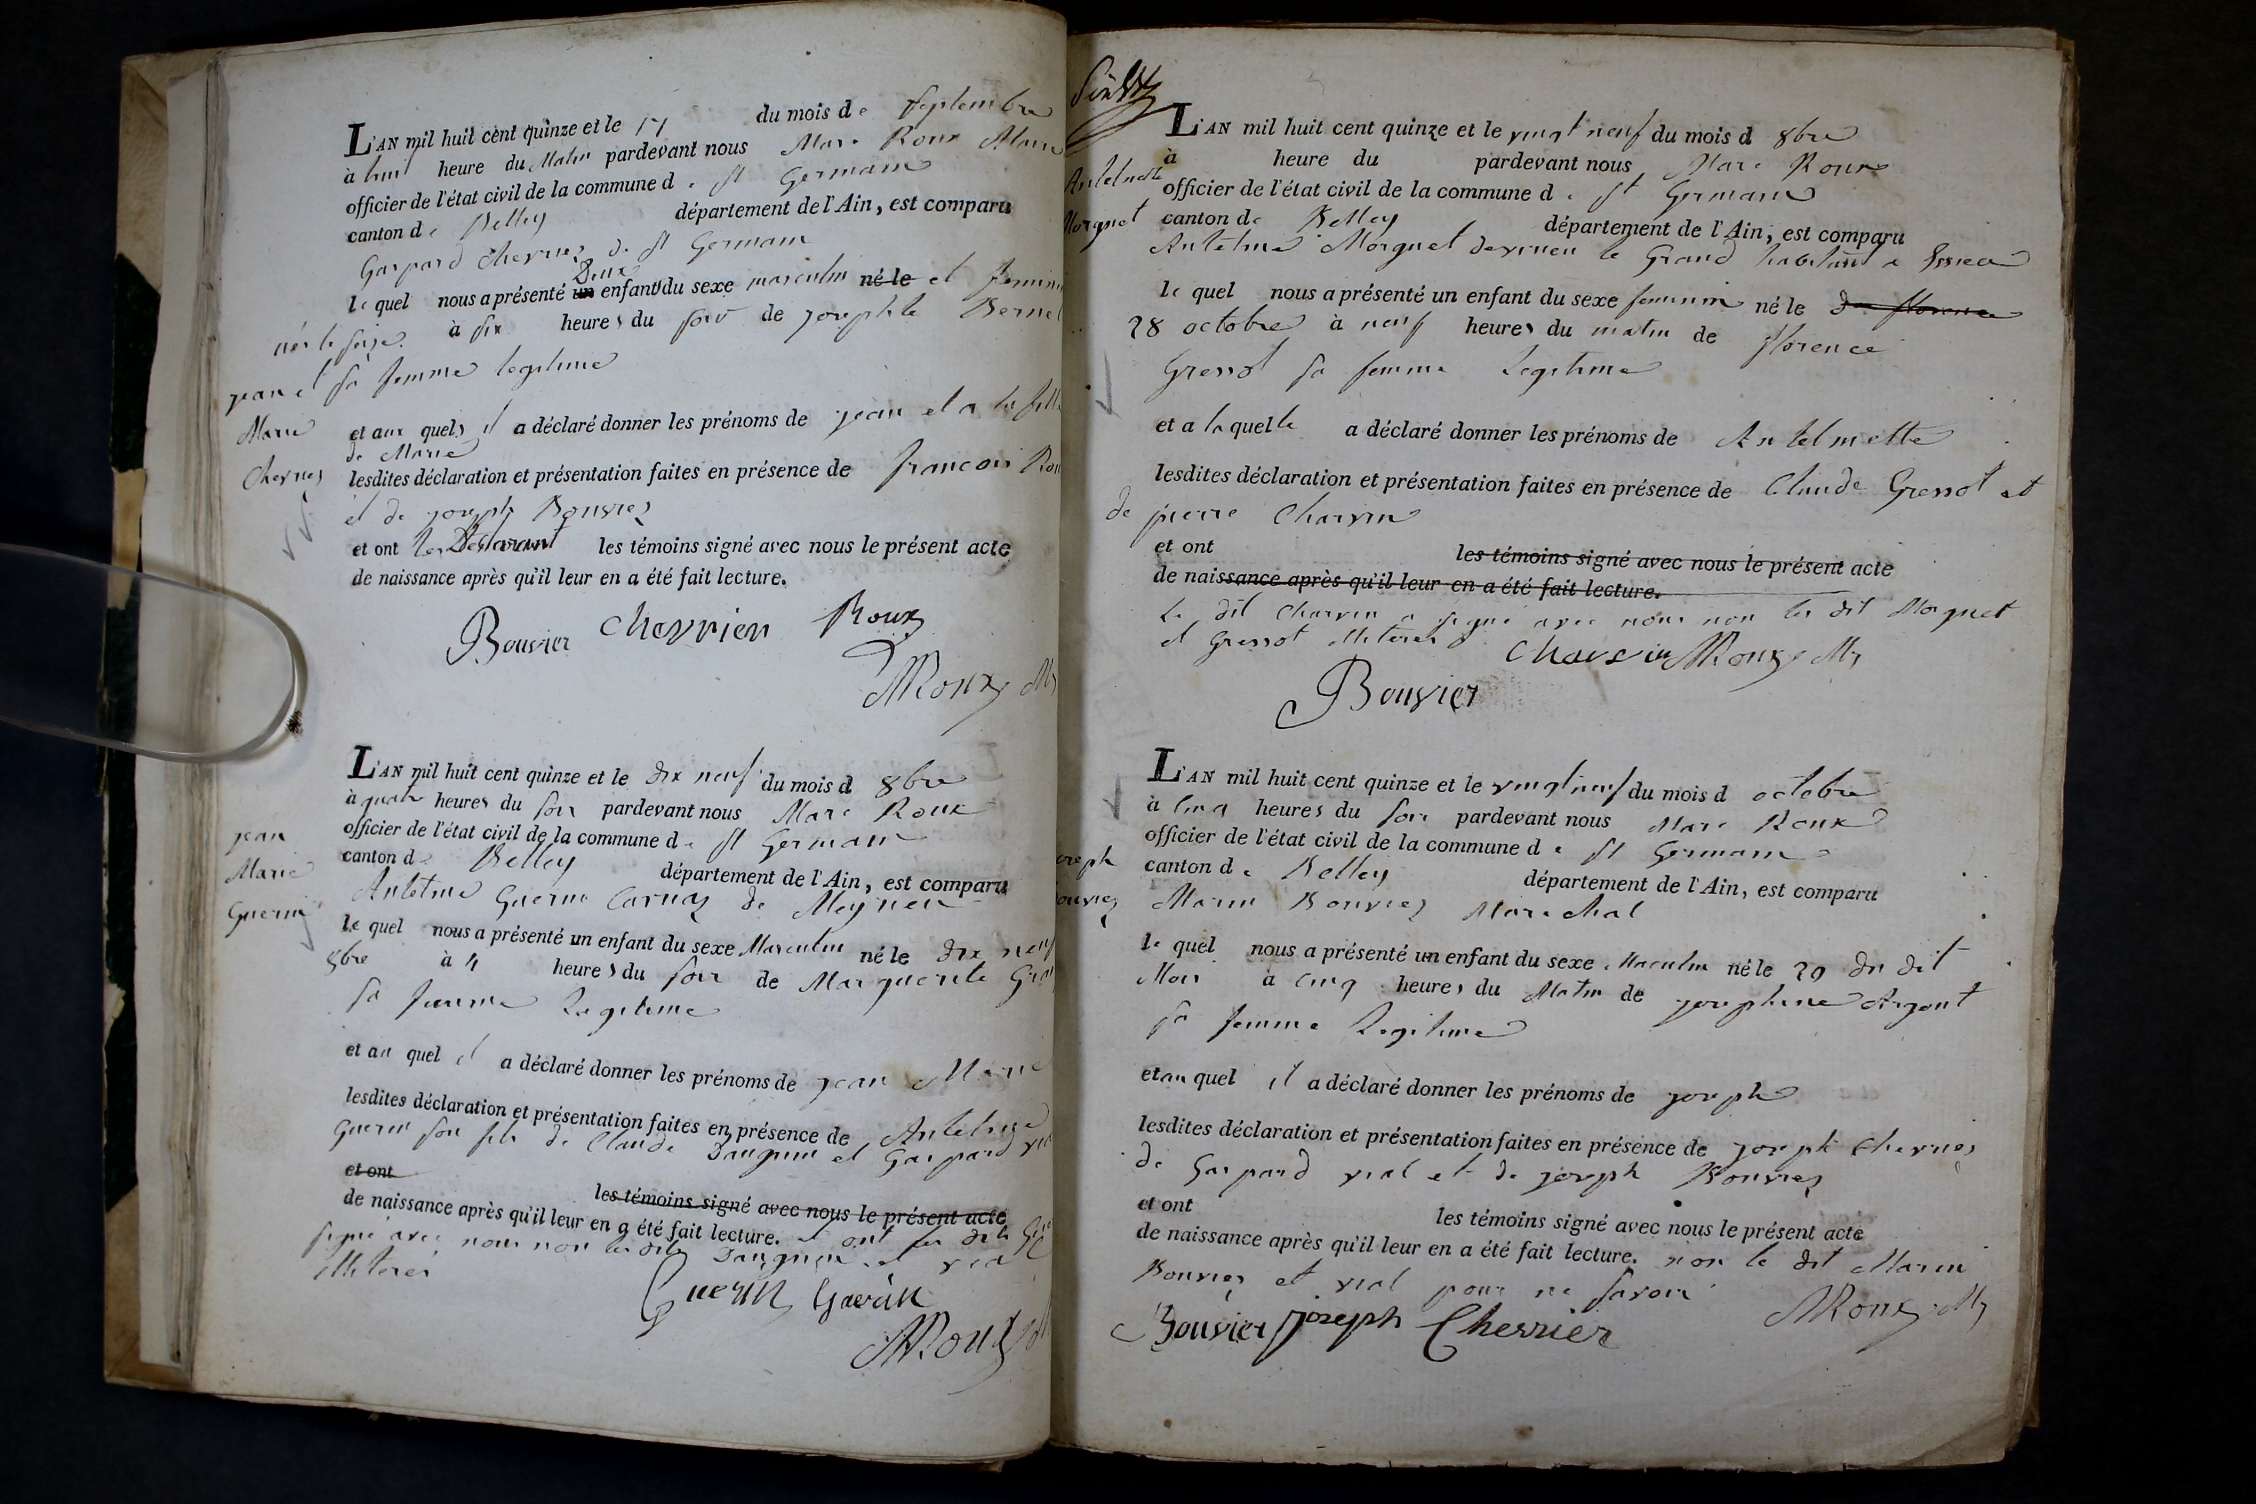 L'AN mil huit cent quinze et le 17 du mois de septembre
à huit heure du Matin pardevant nous Marc Roux Maire
officier de l'état civil de la commune de St Germain
canton de Belley département de l'Ain, est comparu
Gaspard Chevrier de St Germain
Deux
le quel nous a présenté un enfant du sexe masculin né le et feminin
nés le seize à six heures du soir de josephte Bernet
sa femme legitime
jean et
Marie
Chevrier
et aux quels il a déclaré donner les prénoms de jean et a la fille
de Marie
lesdites déclaration et présentation faites en présence de francois Roux
et de joseph Bouvier
et ont les Declarant les témoins signé avec nous le présent acte
de naissance après qu'il leur en a été fait lecture.
Bouvier Chevrier Roux
MRoux
L'AN mil huit cent quinze et le dix neuf du mois d 8bre
à quatre heures du soir pardevant nous Marc Roux
officier de l'état civil de la commune de St Germain
canton de Belley département de l'Ain, est comparu
jean
Marie
Guerin
Antelme Guerin Carnaz de Meynieu
le quel nous a présenté un enfant du sexe Masculin né le dix neuf
8bre à 4 heures du soir de Marguerite
sa femme Legitime
et au quel il a déclaré donner les prénoms de jean Marie
lesdites déclaration et présentation faites en présence de Antelme
Guerin son fils de Claude Danguin et Gaspard vial
et ont les témoins signé avec nous le présent acte
de naissance après qu'il leur en a été fait lecture. et ont les dits
signé avec nous non les dits Danguin et vial
illiteres
Guerin Guerin
MRoux
L'AN mil huit cent quinze et le vingt neuf du mois d 8bre
à heure du pardevant nous Marc Roux
officier de l'état civil de la commune de St Germain
canton de Belley département de l'Ain, est comparu
Antelmette
Morguet
Antelme Morguet devinieu le Grand habitant a
le quel nous a présenté un enfant du sexe feminin né le de florence
28 octobre à neuf heures du matin de florence
Gressot sa femme Legitime
et a laquelle a déclaré donner les prénoms de Antelmette
lesdites déclaration et présentation faites en présence de Claude Gressot et
de pierre Charvin
et ont les témoins signé avec nous le présent acte
de naissance après qu'il leur en a été fait lecture.
Le dit Charvin a signé avec nous non les dit Morguet
et Gressot illiteres
Charvin MRoux
Bouvier
L'AN mil huit cent quinze et le vingt neuf du mois d octobre
à cinq heures du soir pardevant nous Marc Roux
officier de l'état civil de la commune de St Germain
canton de Belley département de l'Ain, est comparu
joseph
Bouvier
Marin Bouvier Marechal
le quel nous a présenté un enfant du sexe Masculin né le 29 du dit
Mois à cinq heures du Matin de josephine Argout
sa femme Legitime
et au quel il a déclaré donner les prénoms de joseph
lesdites déclaration et présentation faites en présence de joseph Chevrier
de Gaspard vial et de joseph Bouvier
et ont les témoins signé avec nous le présent acte
de naissance après qu'il leur en a été fait lecture. non le dit Marin
Bouvier et vial pour ne savoir
Bouvier joseph Chevrier MRoux